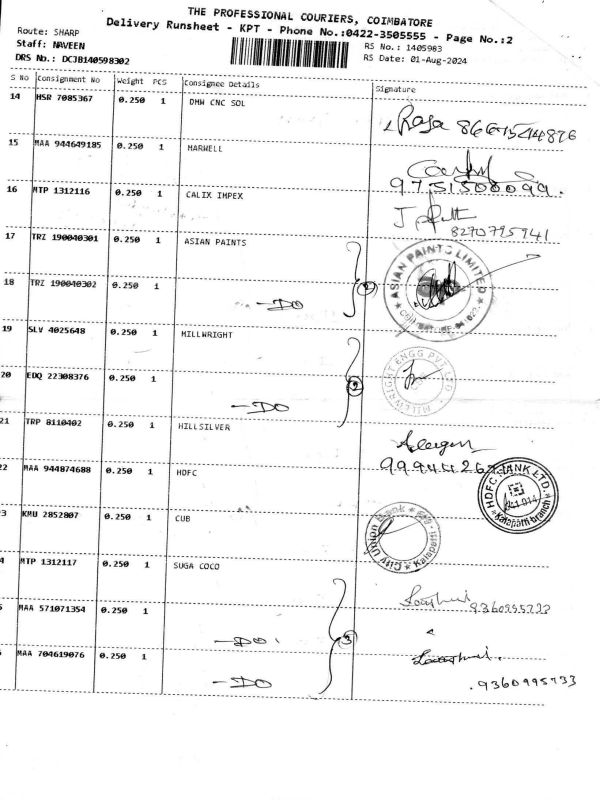 THE PROFESSIONAL COURIERS, COIMBATORE
Delivery Runsheet - KPT - Phone No.:0422-3505555 - Page No.:2
Route: SHARP
RS No.: 1405983
Staff: NAVEEN
RS Date: 01-Aug-2024
DRS No.: DCJB140598302
S No Consignment No Weight PCS Consignee Details Signature
14 HSR 7085367 0.250 1 DHW CNC SOL
Raja
15 MAA 944649185 0.250 1 MARWELL
9751500099.
16 MTP 1312116 0.250 1 CALIX IMPEX
8270795941
17 TRZ 190040301 0.250 1 ASIAN PAINTS
ASIAN PAINTS LIMITED
18 TRZ 190040302 0.250 1 -DO 2
19 SLV 4025648 0.250 1 MILLWRIGHT
MILLWRIGHT ENGG PVT LTD
20 EDQ 22308376 0.250 1 -DO 2
21 TRP 8110402 0.250 1 HILLSILVER
22 MAA 944874688 0.250 1 HDFC
HDFC BANK LTD
Kalapatti-branch
3 KMU 2852807 0.250 1 CUB
City Union Bank
Kalapatti
4 MTP 1312117 0.250 1 SUGA COCO
5 MAA 571071354 0.250 1 -DO. 3
MAA 704619076 0.250 1 -DO
.9360995733